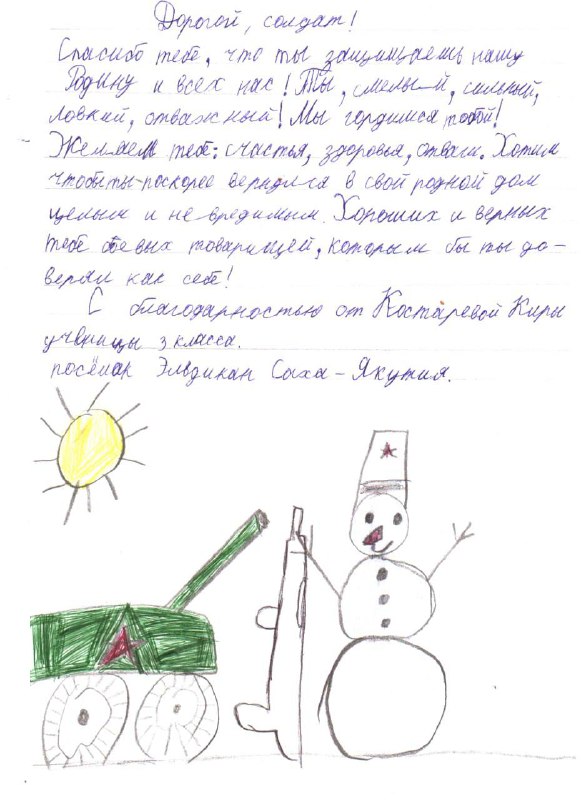 Дорогой, солдат!
Спасибо тебе, что ты защищаешь нашу
Родину и всех нас! Ты, смелый, сильный,
ловкий, отважный! Мы гордимся тобой!
Желаем тебе: счастья, здоровья, отваги. Хотим
чтобы ты поскорее вернулся в свой родной дом
целым и не вредимым. Хороших и верных
тебе боевых товарищей, которым бы ты до-
верял как себе!
С благодарностью от Костаревой Киры
ученицы 3 класса.
посёлок Эльдикан Саха-Якутия.